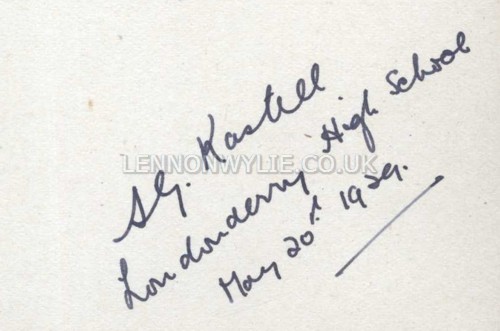 S.G. Kastell
Londonderry High School
LENNONWYLIE.CO.UK
May 20th 1929.